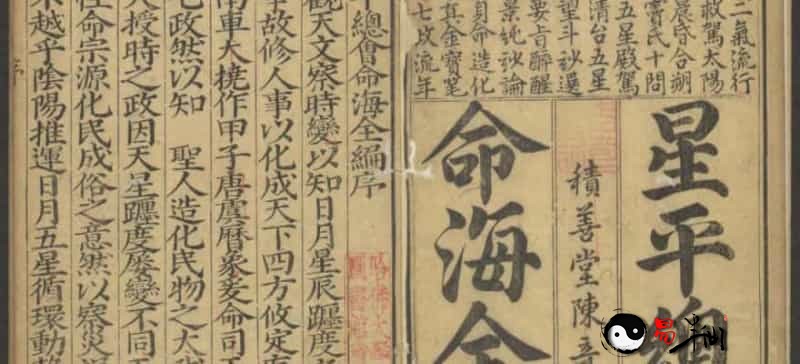 二氣流行
救駕太陽
晨昏合朔
竇氏十問
五星殿駕
清台五星
望斗秒遲
要旨醉醒
景純秒論
貝命造化
真金寶鑒
七政流年
星平
積善堂陳
命海全
總會命海全編序
觀天文察時變以知日月星辰躔度
故修人事以化成天下四方攸定
南車大撓作甲子唐虞曆象爰命司
七政然以知 聖人造化民物之大
人授時之政因天星躔度屢變不同
性命宗源化民成俗之意然以察災
越乎陰陽推運日月五星循環動
序
易